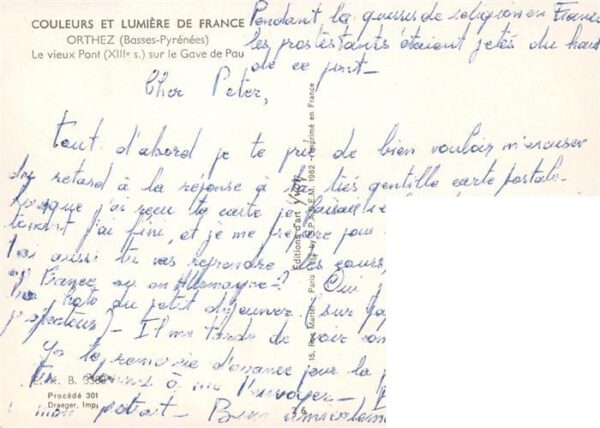 COULEURS ET LUMIÈRE DE FRANCE
ORTHEZ (Basses-Pyrénées)
Le vieux Pont (XIIIe s.) sur le Gave de Pau
Pendant la guerre de religion en France
les protestants étaient jetés du haut
de ce pont_
Cher Peter,
Tout d'abord je te prie de bien vouloir m'excuser
du retard à la réponse à ta très gentille carte postale_
Lorsque j'ai reçu ta carte je
tenant j'ai fini, et je me prépare pour
Toi aussi tu vas reprendre les cours,
en France ou en Allemagne_? Oui j
photo du petit déjeuner (sur
projecteur)_ Il me tarde de voir
Je te remercie d'avance pour la
à me l'envoyer_
mon portrait_ Bien amicalement
Editions d'art Yvon
15, Rue Martel, Paris
1962
Imprimé en France
Procédé 301
Draeger, Imp.